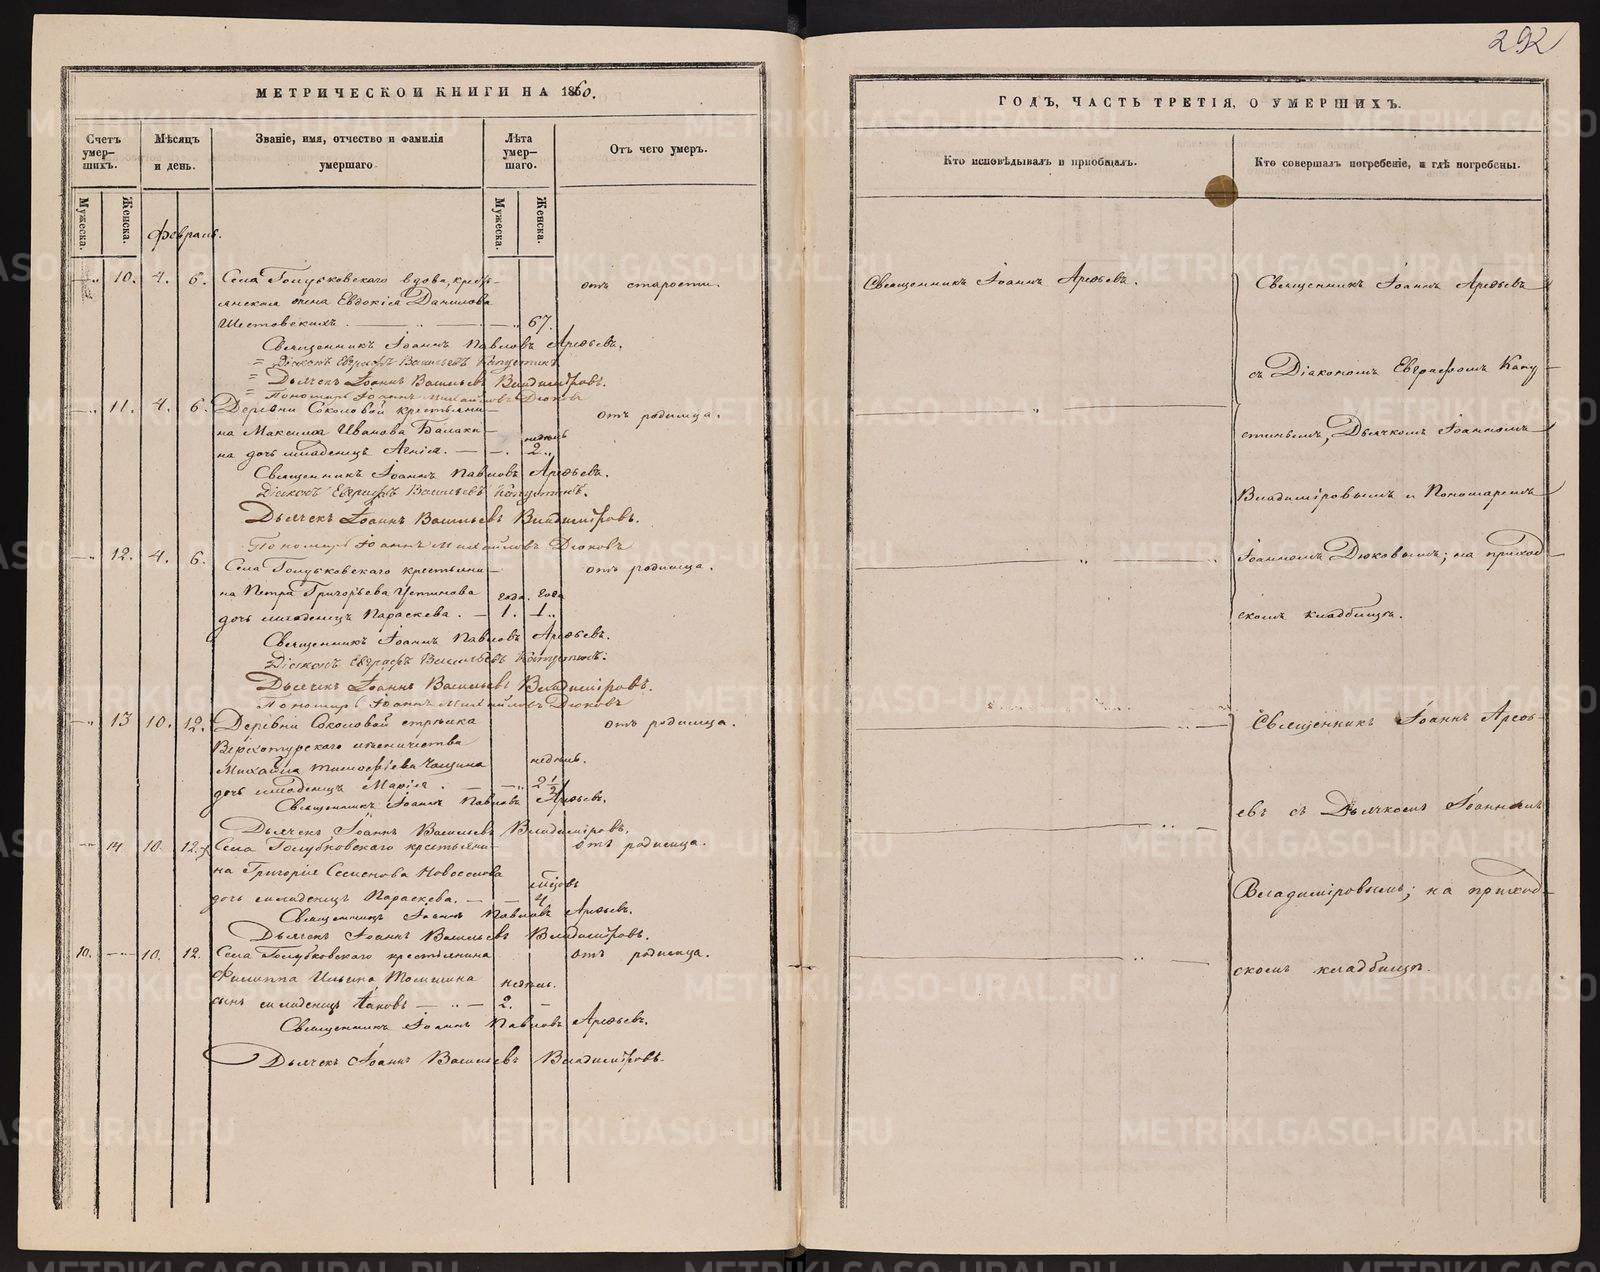 292
МЕТРИЧЕСКОЙ КНИГИ НА 1860.
Счетъ умер-шихъ.
Мѣсяцъ и день.
Званіе, имя, отчество и фамилія умершаго
Лѣта умер-шаго.
Отъ чего умеръ.
Мужеска.
Женска.
Мужеска.
Женска.
Февраль.
10. 4. 6. Села Голубковскаго вдова, кресть- отъ старости.
янская жена Евдокія Данилова
Шестовскихъ. 67.
Священникъ Іоаннъ Павловъ Арефьевъ.
Діаконъ Евграфъ Васильевъ Капустинъ
Дьячекъ Іоаннъ Васильевъ Владиміровъ.
Пономарь Іоаннъ Михайловъ Дюковъ
11. 4. 6. Деревни Соколовой крестьяни- отъ родимца.
на Максима Иванова Балаки-
недѣль
на дочь младенецъ Агнія. 2.
Священникъ Іоаннъ Павловъ Арефьевъ.
Діаконъ Евграфъ Васильевъ Капустинъ.
Дьячекъ Іоаннъ Васильевъ Владиміровъ.
Пономарь Іоаннъ Михайловъ Дюковъ
12. 4. 6. Села Голубковскаго крестьяни- отъ родимца.
на Петра Григорьева Устинова года. года
дочь младенецъ Параскева. 1. 1.
Священникъ Іоаннъ Павловъ Арефьевъ.
Діаконъ Евграфъ Васильевъ Капустинъ.
Дьячекъ Іоаннъ Васильевъ Владиміровъ.
Пономарь Іоаннъ Михайловъ Дюковъ
13 10. 12. Деревни Соколовой стрѣлка отъ родимца.
Верхотурскаго лѣсничества
Михайла Тимофѣева Чащина недѣль.
дочь младенецъ Марія. 2 1/2
Священникъ Іоаннъ Павловъ Арефьевъ.
Дьячекъ Іоаннъ Васильевъ Владиміровъ.
14. 10. 12. Села Голубковскаго крестьяни- отъ родимца.
на Григорія Семенова Новоселова
мѣсцовъ
дочь младенецъ Параскева. 4.
Священникъ Іоаннъ Павловъ Арефьевъ.
Дьячекъ Іоаннъ Васильевъ Владиміровъ.
10. 10. 12. Села Голубковскаго крестьянина отъ родимца.
Филиппа Ильина недѣль.
сынъ младенецъ Іаковъ 2.
Священникъ Іоаннъ Павловъ Арефьевъ.
Дьячекъ Іоаннъ Васильевъ Владиміровъ.
ГОДЪ, ЧАСТЬ ТРЕТІЯ, О УМЕРШИХЪ.
Кто исповѣдывалъ и пріобщалъ.
Кто совершалъ погребеніе, и гдѣ погребены.
Священникъ Іоаннъ Арефьевъ.
Священникъ Іоаннъ Арефьевъ
съ Діакономъ Евграфомъ Капу-
стинымъ, Дьячкомъ Іоанномъ
Владиміровымъ и Пономаремъ
Іоанномъ Дюковымъ; на приход-
скомъ кладбищѣ.
Священникъ Іоаннъ Ареф-
евъ съ Дьячкомъ Іоанномъ
Владиміровымъ; на приход-
скомъ кладбищѣ.
METRIKI.GASO-URAL.RU